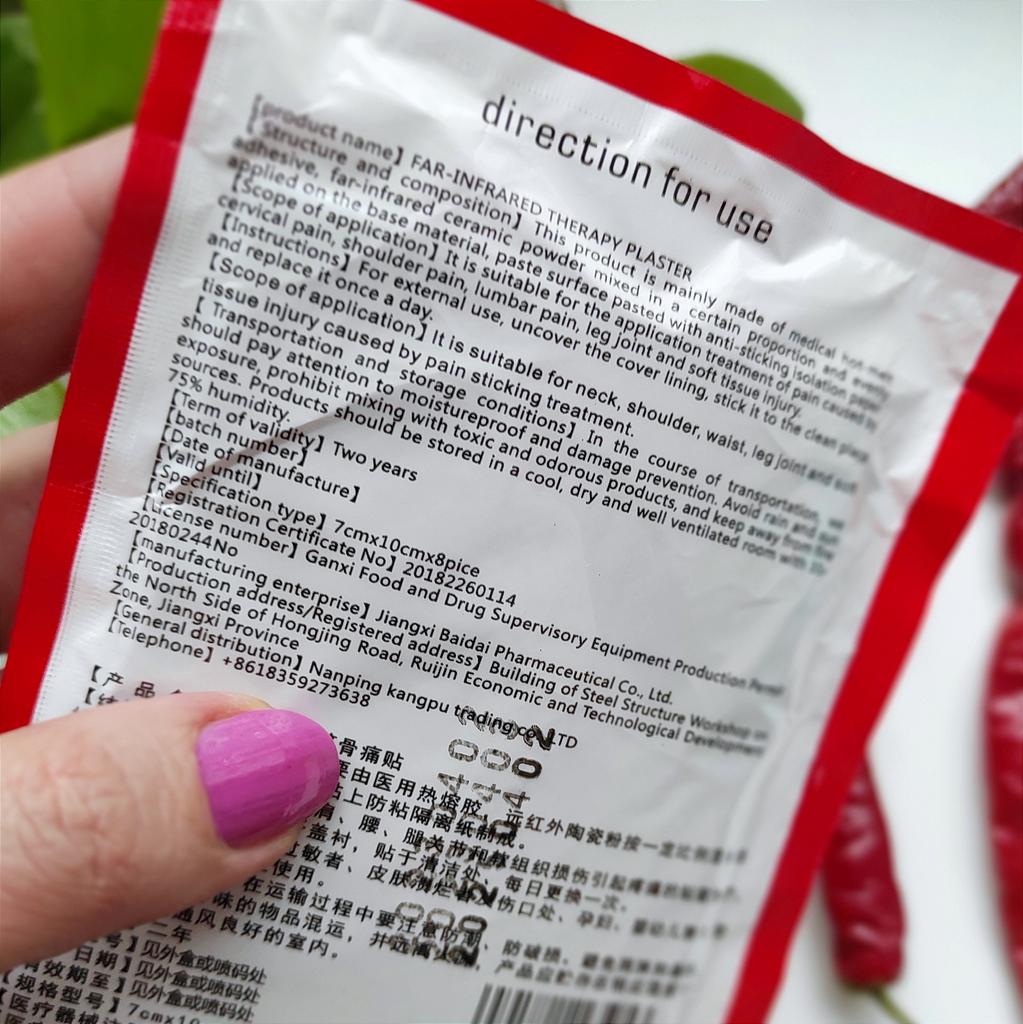 direction for use
【product name】 FAR-INFRARED THERAPY PLASTER
【Structure and composition】 This product is mainly made of medical hot-melt
adhesive, far-infrared ceramic powder mixed in a certain proportion, and evenly
applied on the base material, paste surface pasted with anti-sticking isolation paper
【Scope of application】 It is suitable for the application treatment of pain caused by
cervical pain, shoulder pain, lumbar pain, leg joint and soft tissue injury.
【Instructions】 For external use, uncover the cover lining, stick it to the clean place
and replace it once a day.
【Scope of application】 It is suitable for neck, shoulder, waist, leg joint and soft
tissue injury caused by pain sticking treatment.
【 Transportation and storage conditions】 In the course of transportation, we
should pay attention to moistureproof and damage prevention. Avoid rain and sun
exposure, prohibit mixing with toxic and odorous products, and keep away from fire
sources. Products should be stored in a cool, dry and well ventilated room with
75% humidity.
【Term of validity】 Two years
【batch number】
【Date of manufacture】
【Valid until】
【Specification type】 7cmx10cmx8pice
【Registration Certificate No】 20182260114
【License number】 Ganxi Food and Drug Supervisory Equipment Production Permit
20180244No
【manufacturing enterprise】 Jiangxi Baidai Pharmaceutical Co., Ltd.
【Production address/Registered address】 Building of Steel Structure Workshop on
the North Side of Hongjing Road, Ruijin Economic and Technological Development
Zone, Jiangxi Province
【General distribution】 Nanping kangpu trading co., LTD
【Telephone】 +8618359273638
【产 品
骨痛贴
要由医用热熔胶、远红外陶瓷粉按一定比例
上防粘隔离纸制成。
肩、腰、腿关节和软组织损伤引起疼痛的
盖衬，贴于清洁处，每日更换一次。
过敏者、皮肤溃烂者及伤口处、孕妇、
使用。
在运输过程中要注意防潮、防破损，避免
味的物品混运，并远离火源，产品应贮存在
通风良好的室内。
二年
号】见外盒或喷码处
日期】见外盒或喷码处
有效期至】见外盒或喷码处
【规格型号】7cmx10
【医疗器械